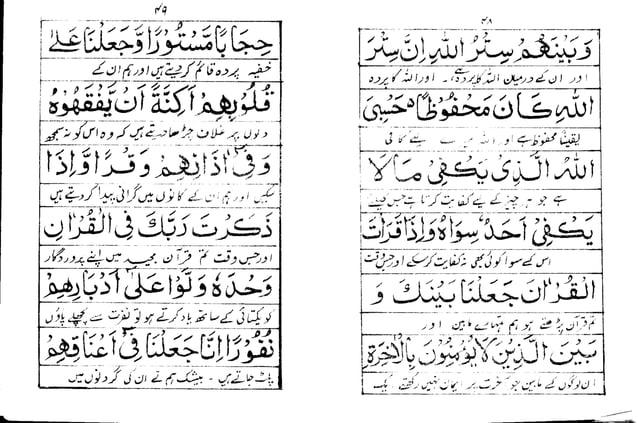 ۴۸
وَبَيْنَهُمْ سِتْرُ اللهِ اِنَّ سِتْرَ
اور ان کے درمیان اللہ کا پردہ ہے۔ اور اللہ کا پردہ
اللهِ كَانَ مَحْفُوْظًا حَسْبِىَ
یقیناً محفوظ ہے اور اللہ میرے لیے کافی
اللهُ الَّذِىْ يَكْفِىْ مَا لَا
ہے جو ہر چیز کے لیے کفایت کرتا ہے جس کے لیے
يَكْفِىْ اَحَدٌ سِوَاهُ وَاِذَا قَرَاْتَ
اس کے سوا کوئی بھی نہ کفایت کر سکے اور جس وقت
الْقُرْاٰنَ جَعَلْنَا بَيْنَكَ وَ
تم قرآن پڑھتے ہو ہم تمہارے مابین اور
بَيْنَ الَّذِيْنَ لَا يُؤْمِنُوْنَ بِالْاٰخِرَةِ
ان لوگوں کے مابین جو آخرت پر ایمان نہیں رکھتے۔ ایک
۴۹
حِجَابًا مَّسْتُوْرًا وَّجَعَلْنَا عَلٰى
خفیہ پردہ قائم کر دیتے ہیں اور ہم ان کے
قُلُوْبِهِمْ اَكِنَّةً اَنْ يَّفْقَهُوْهُ
دلوں پر غلاف چڑھا دیتے ہیں کہ وہ اس کو نہ سمجھ
وَفِىْ اٰذَانِهِمْ وَقْرًا وَّاِذَا
سکیں اور ہم ان کے کانوں میں گرانی پیدا کر دیتے ہیں
ذَكَرْتَ رَبَّكَ فِى الْقُرْاٰنِ
اور جس وقت تم قرآن مجید میں اپنے پروردگار
وَحْدَهٗ وَلَّوْا عَلٰى اَدْبَارِهِمْ
کو یکتائی کے ساتھ یاد کرتے ہو تو نفرت سے پچھلے پاؤں
نُفُوْرًا اِنَّا جَعَلْنَا فِىْ اَعْنَاقِهِمْ
پلٹ جاتے ہیں۔ بیشک ہم نے ان کی گردنوں میں